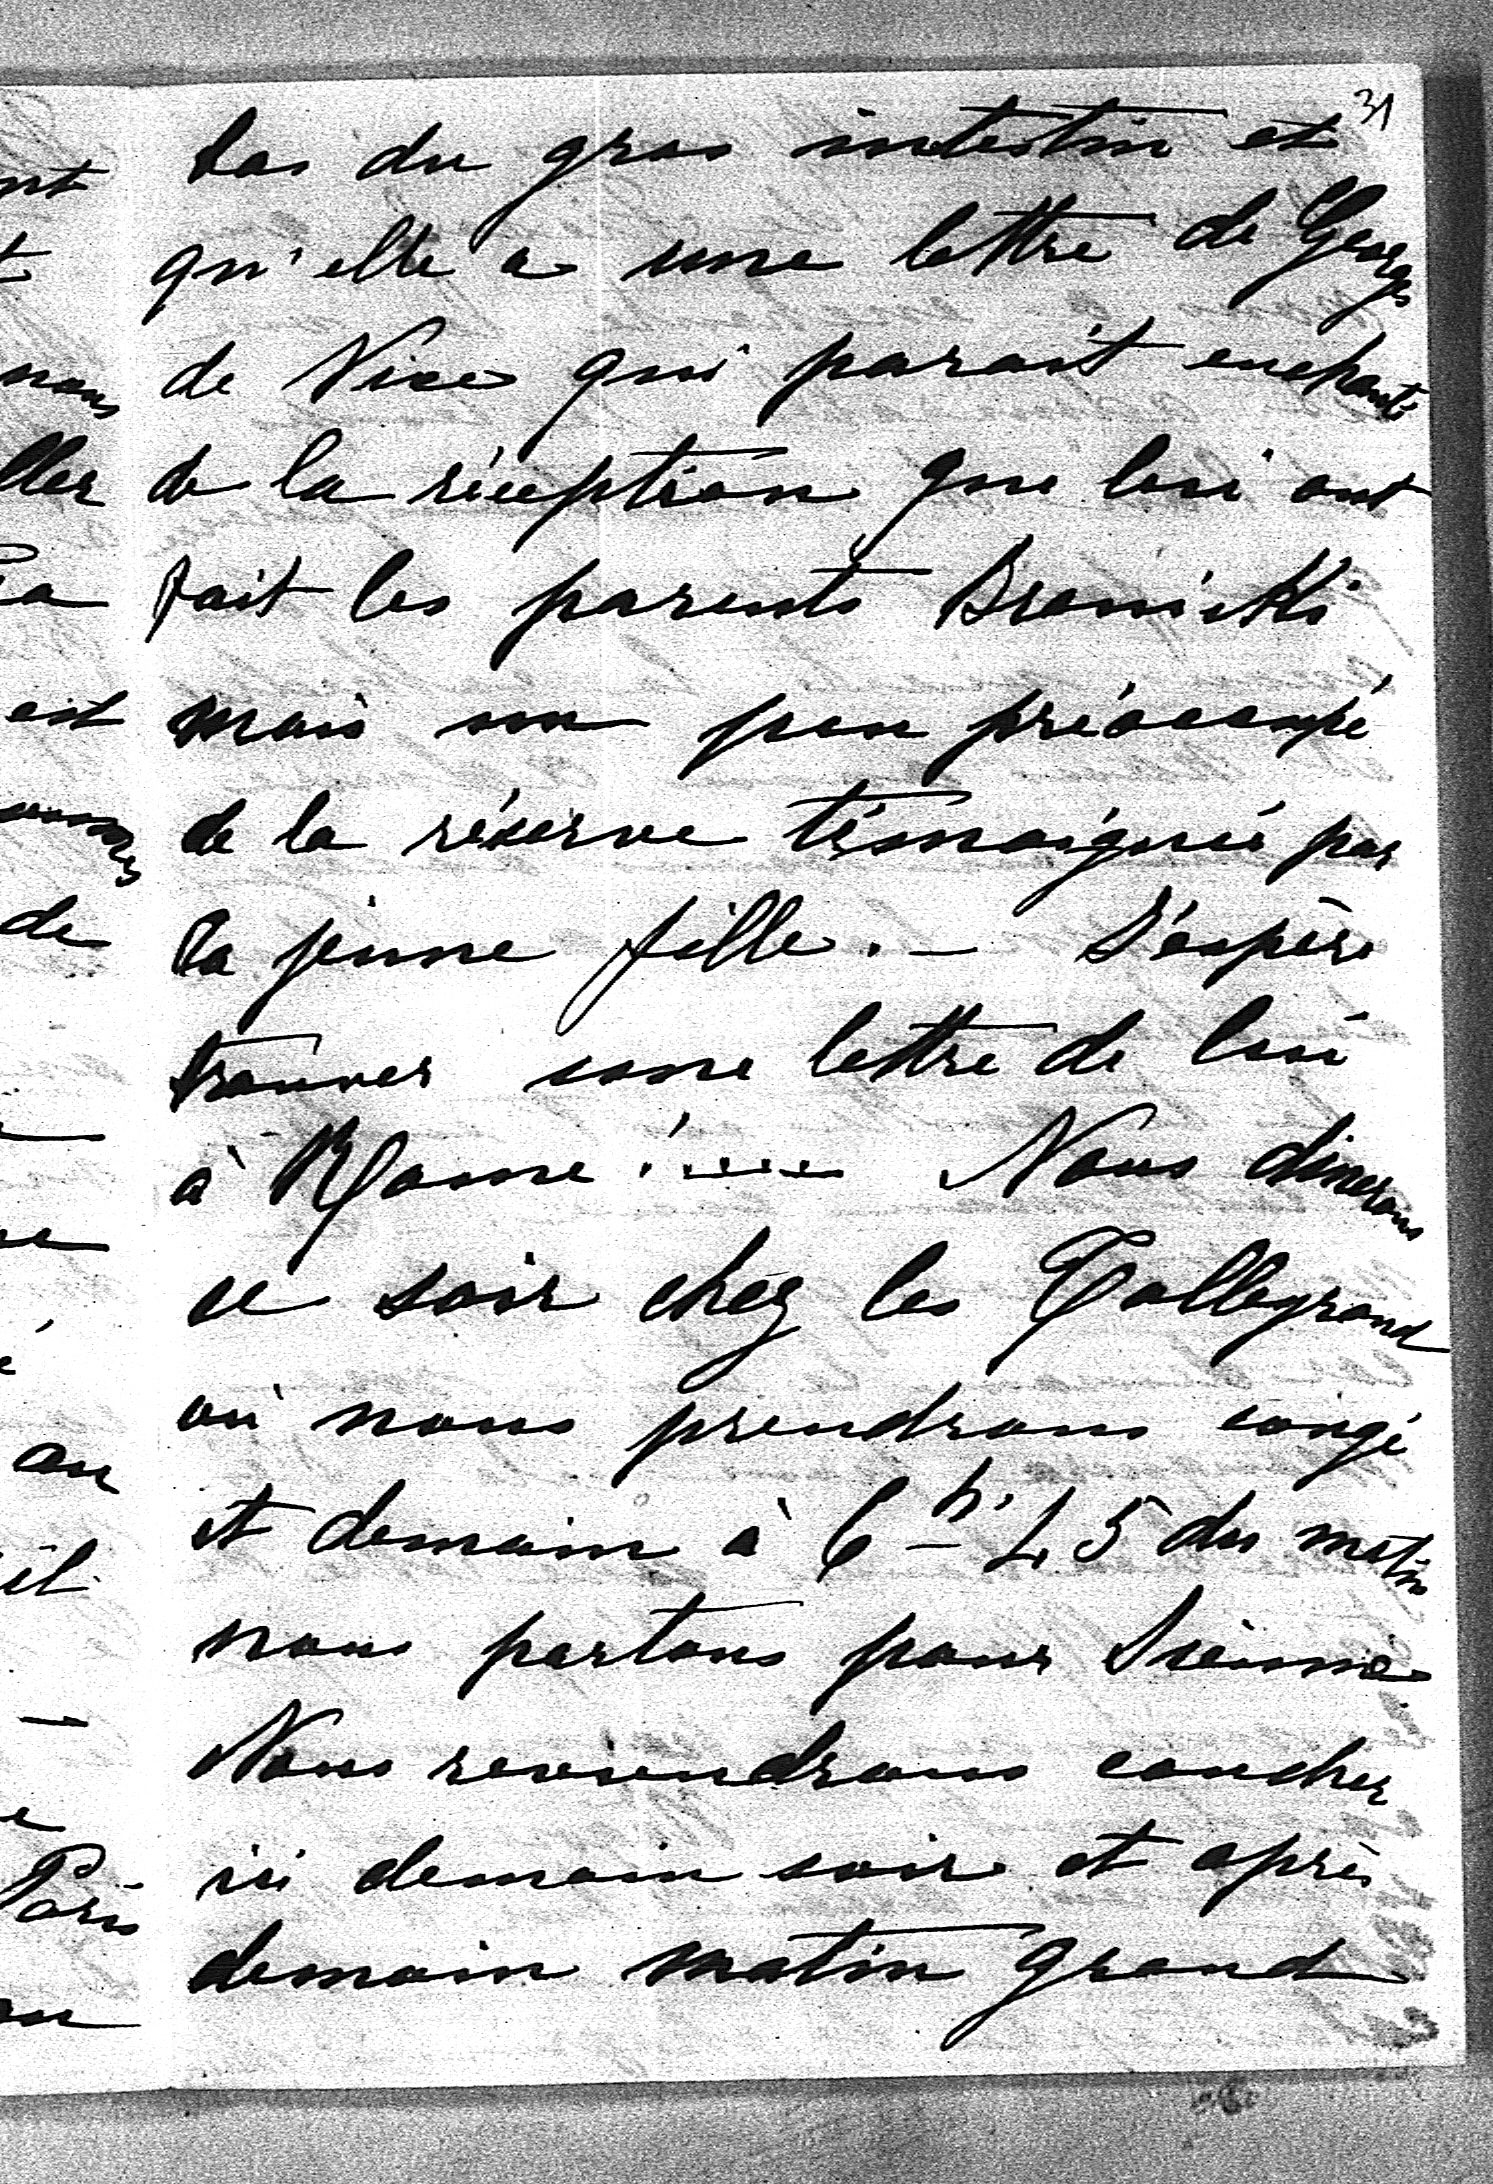 31
bas du gros intestin et
qu'elle a une lettre de Georges
de Nice qui parait enchanté
de la réception que lui ont
fait les parents Branicki
mais un peu préoccupé
de la réserve témoignée par
la jeune fille. — J'espère
trouver une lettre de lui
à Rome !..... Nous dinerons
ce soir chez les Talleyrand
où nous prendrons congé
et demain à 6h. 45 du matin
nous partons pour Sienne
Nous reviendrons coucher
ici demain soir et après
demain matin grand